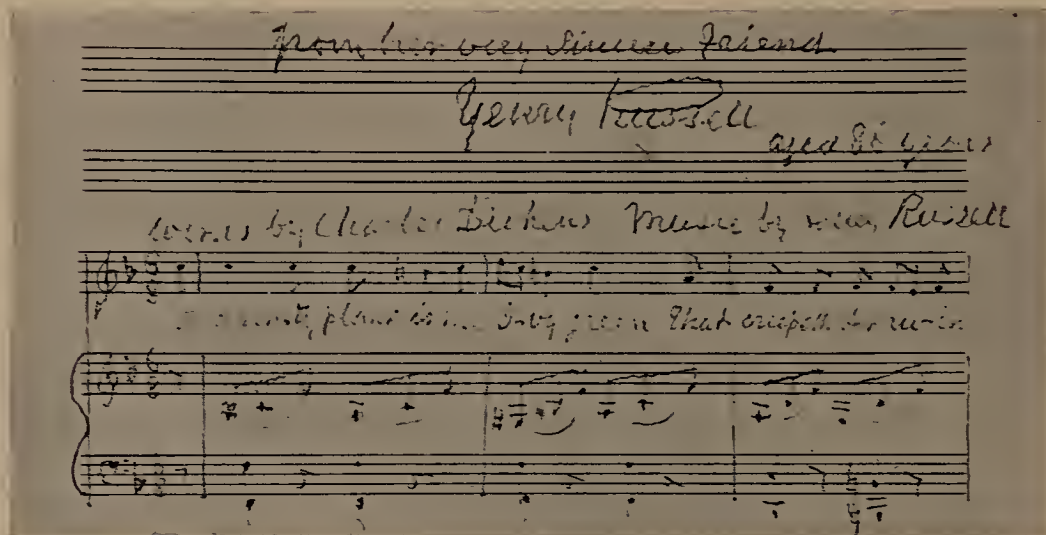 from her very sincere Friend
Henry Russell
aged 86 years
words by Charles Dickens Music by Henry Russell
plant is the I-vy green that creepeth o'er ru-in